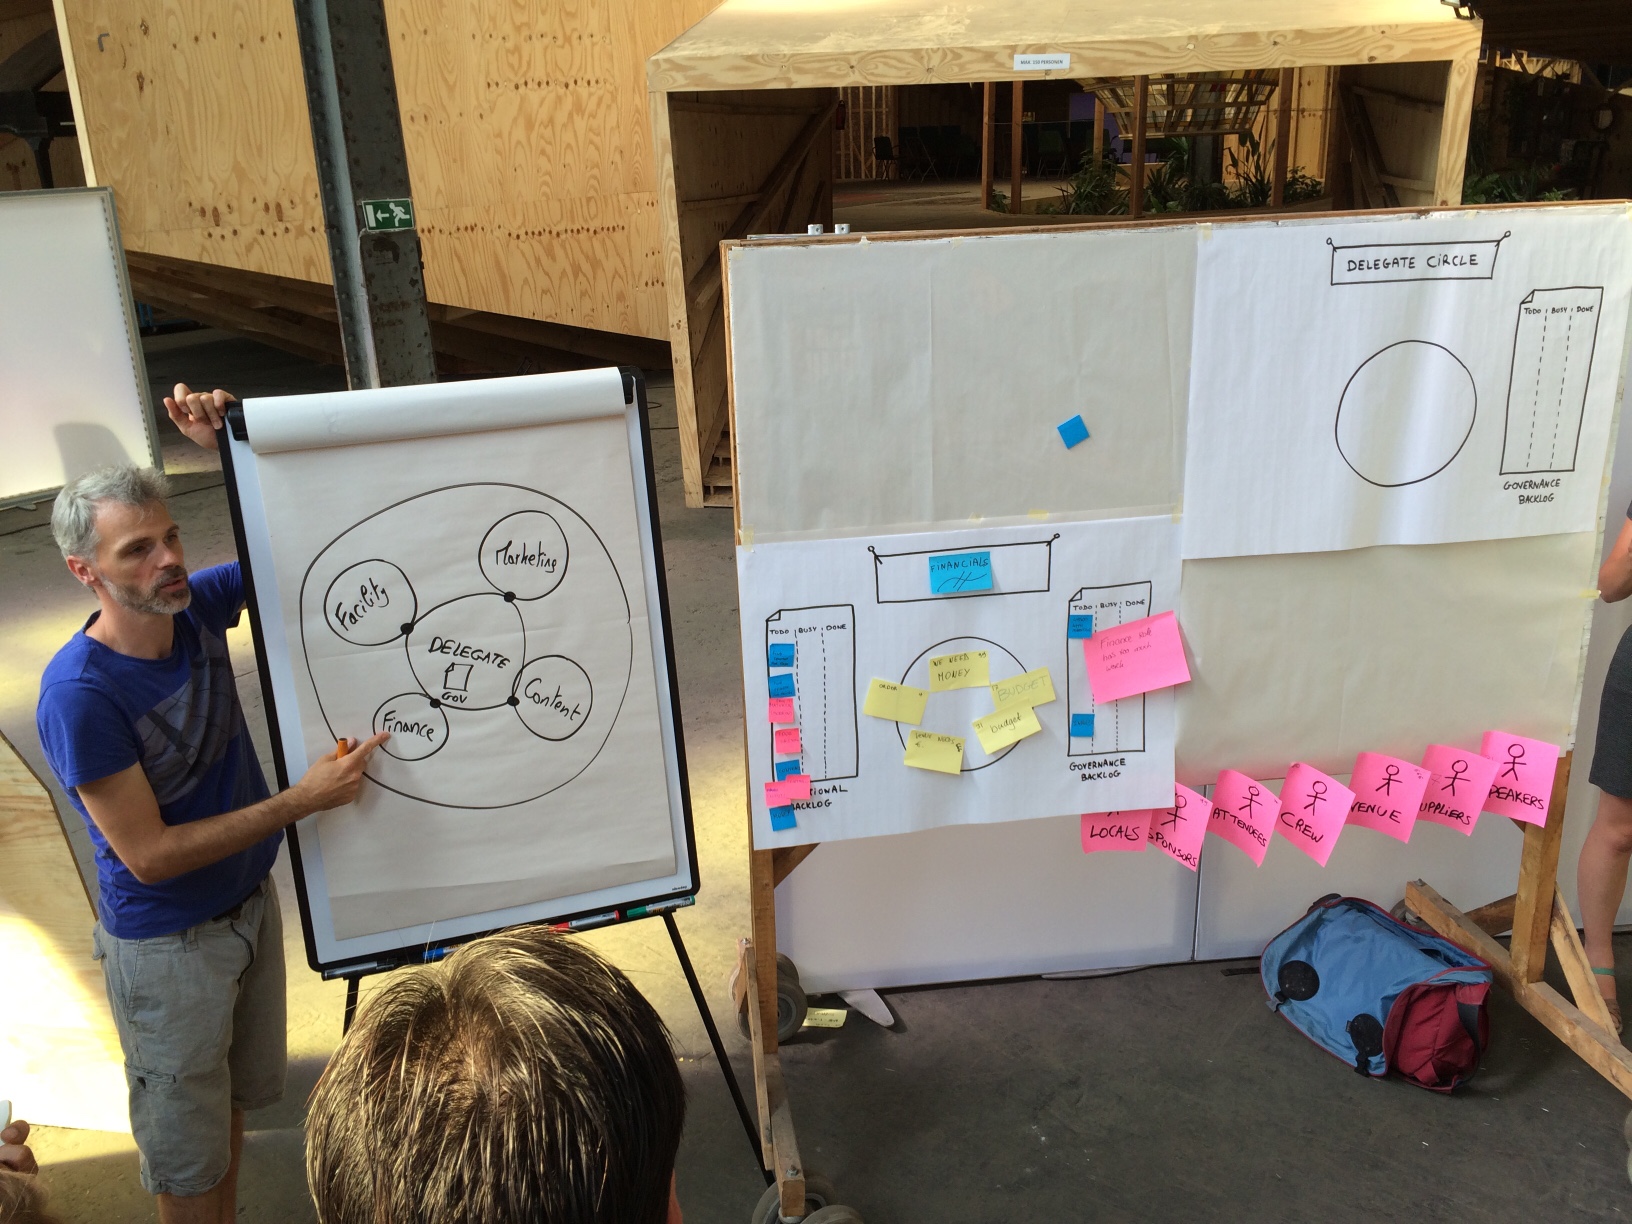 MAX. 150 PERSONEN
Marketing
Facility
DELEGATE
GOV
Content
Finance
DELEGATE CIRCLE
TODO BUSY DONE
GOVERNANCE
BACKLOG
FINANCIALS
TODO BUSY DONE
BACKLOG
WE NEED
MONEY
ORDER
BUDGET
budget
TODO BUSY DONE
Finance role
has too much
work
GOVERNANCE
BACKLOG
LOCALS
SPONSORS
ATTENDEES
CREW
VENUE
SUPPLIERS
SPEAKERS